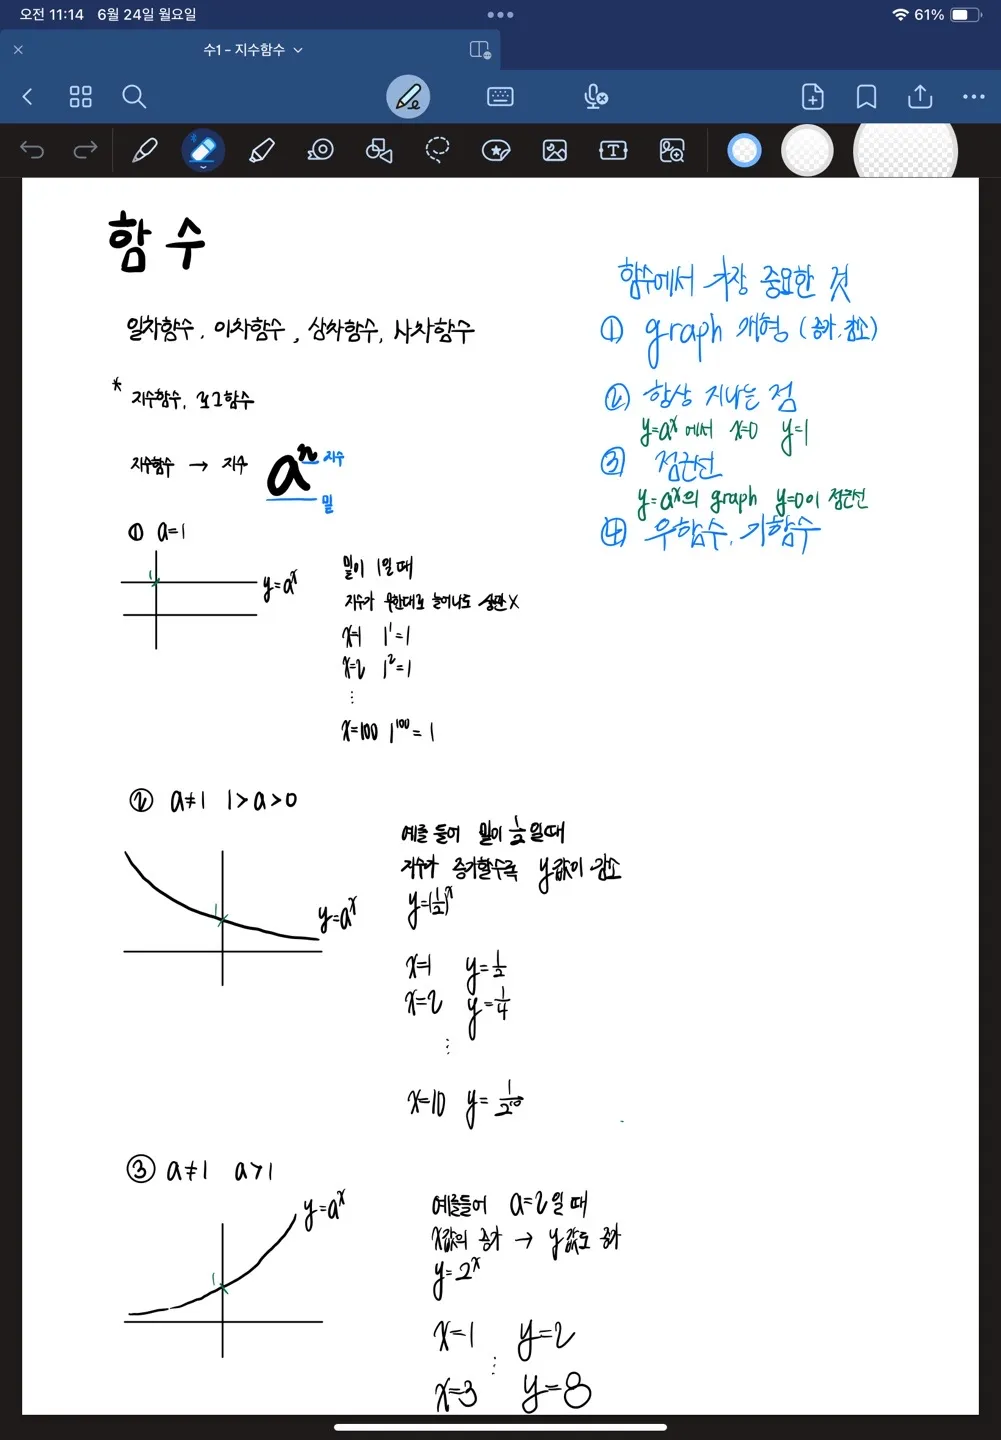 오전 11:14 6월 24일 월요일
61%
수1 - 지수함수
함수
일차함수, 이차함수, 삼차함수, 사차함수
* 지수함수, 로그함수
지수함수 → 지수 aⁿ 지수
밑
① a=1
1
y=aˣ
밑이 1일 때
지수가 무한대로 늘어나도 상관 X
x=1 1¹=1
x=2 1²=1
⋮
x=100 1¹⁰⁰=1
② a≠1 1>a>0
1
y=aˣ
예를 들어 밑이 1/2일 때
지수가 증가할수록 y값이 감소
y=(1/2)ˣ
x=1 y=1/2
x=2 y=1/4
⋮
x=10 y=1/2¹⁰
③ a≠1 a>1
y=aˣ
1
예를들어 a=2일 때
x값의 증가 → y값도 증가
y=2ˣ
x=1 y=2
⋮
x=3 y=8
함수에서 가장 중요한 것
① graph 개형 (증가, 감소)
② 항상 지나는 점
y=aˣ에서 x=0 y=1
③ 점근선
y=aˣ의 graph y=0이 점근선
④ 우함수, 기함수